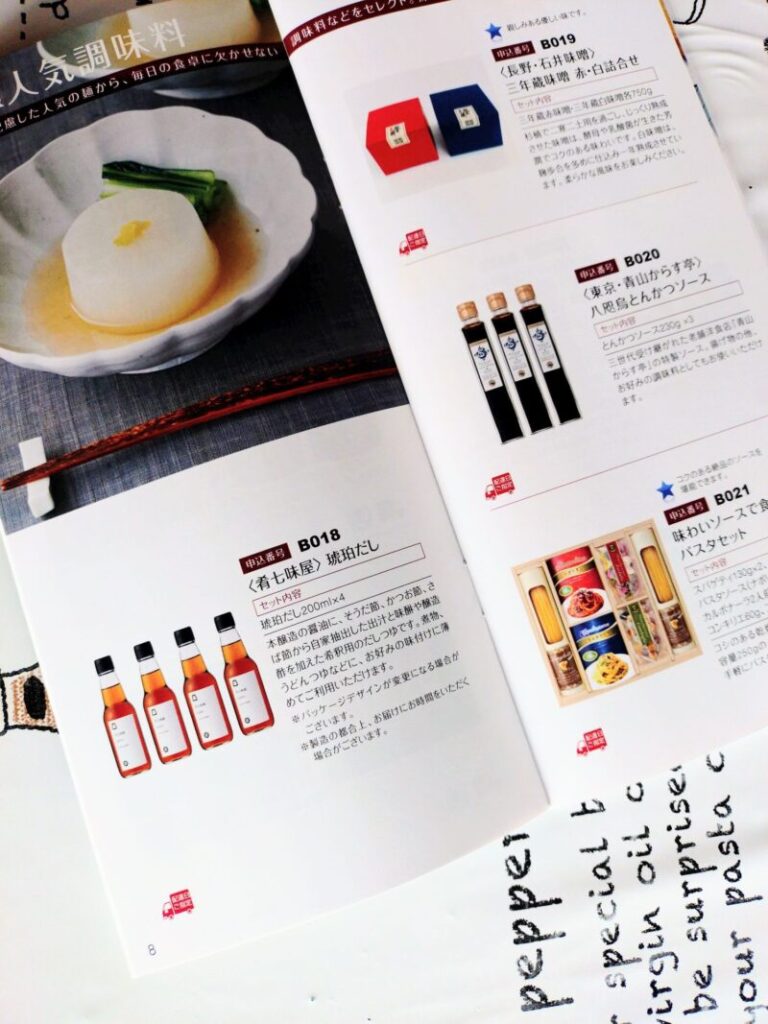 人気調味料
慮した人気の麺から、毎日の食卓に欠かせない
申込番号 B018
〈肴七味屋〉琥珀だし
セット内容
琥珀だし200ml×4
本醸造の醤油に、そうだ節、かつお節、さ
ば節から自家抽出した出汁と味醂や醸造
酢を加えた希釈用のだしつゆです。煮物、
うどんつゆなどに、お好みの味付けに薄
めてご利用いただけます。
※パッケージデザインが変更になる場合が
ございます。
※製造の都合上、お届けにお時間をいただく
場合がございます。
配達日
ご指定
8
調味料などをセレクト。
親しみある優しい味です。
申込番号 B019
〈長野・石井味噌〉
三年蔵味噌 赤・白詰合せ
セット内容
三年蔵赤味噌・三年蔵白味噌各750g
杉桶で二寒二土用を過ごし、じっくり熟成
させた味噌は、酵母や乳酸菌が生きた芳
潤でコクのある味わいです。白味噌は、
麹歩合を多めに仕込み一年熟成させてい
ます。柔らかな風味をお楽しみください。
配達日
ご指定
申込番号 B020
〈東京・青山からす亭〉
八咫烏とんかつソース
セット内容
とんかつソース230g×3
三世代受け継がれた老舗洋食店「青山
からす亭」の特製ソース。揚げ物の他、
お好みの調味料としてもお使いいただけ
ます。
配達日
ご指定
コクのある絶品のソースを
堪能できます。
申込番号 B021
味わいソースで食
パスタセット
セット内容
スパゲティ130g×2、
パスタソース(ナポリ
カルボナーラ2人前
コンキリエ60g、
コシのある乾
容量260gの
手軽にパス
配達日
ご指定
pepper
special b
virgin oil
be surprise
your pasta